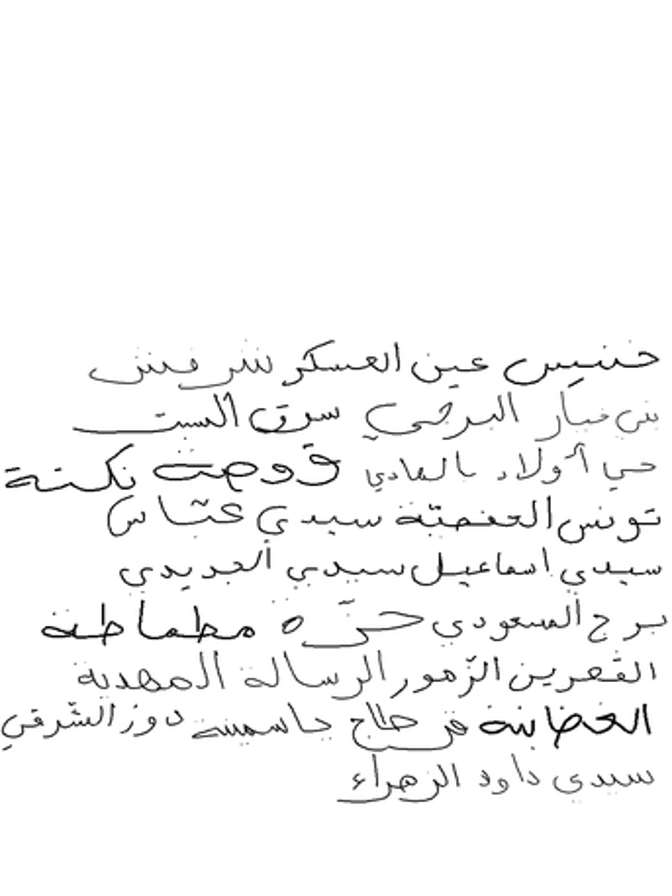 خنيس عين العسكر شرفش
بني خيار البرجي سوق السبت
حي أولاد بالهادي قروصت نكتة
تونس الحفصية سيدي عباس
سيدي اسماعيل سيدي الجديدي
برج المسعودي حزة مطماطة
القصرين الزمور الرسالة المهدية
الغضابنة فج طلاج ياسمينة دوز الشرقي
سيدي داود الزهراء